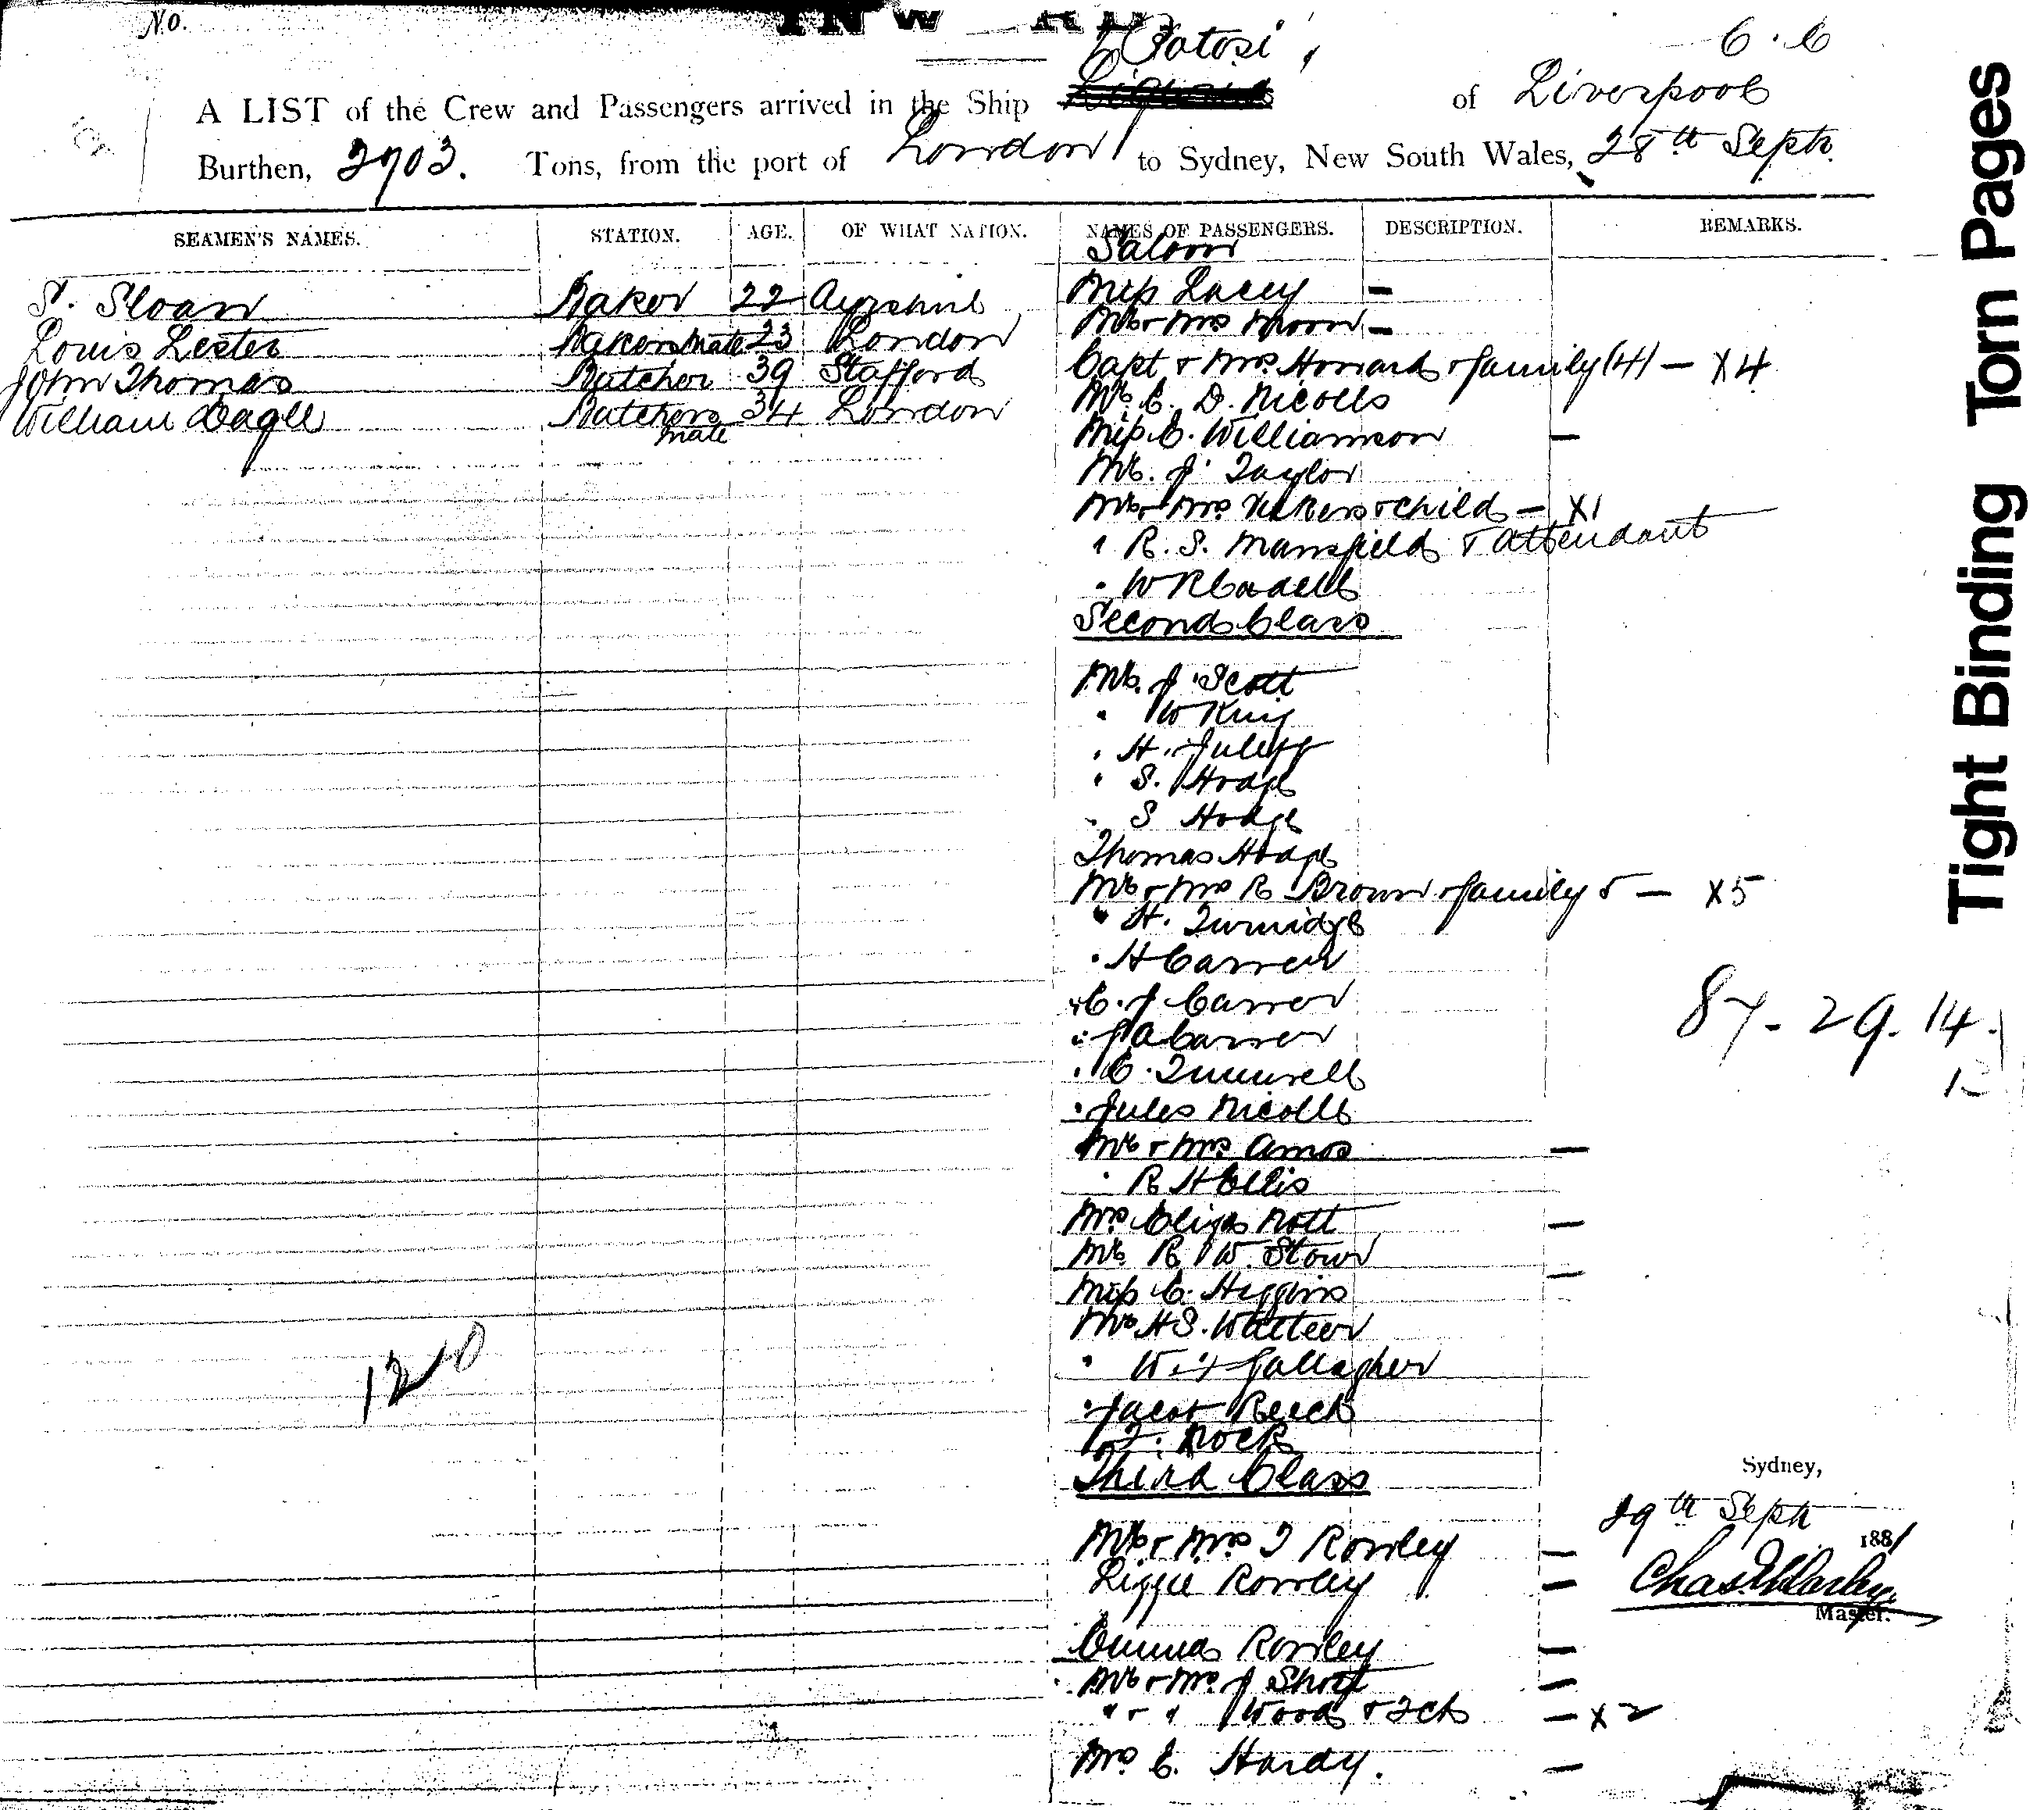 No.
Potosi,
6.6
A LIST of the Crew and Passengers arrived in the Ship of Liverpool
Burthen, 2703. Tons, from the port of London to Sydney, New South Wales, 28th Septr.
SEAMEN'S NAMES. STATION. AGE. OF WHAT NATION. NAMES OF PASSENGERS. DESCRIPTION. REMARKS.
Saloon
S. Sloan Baker 22 Ayrshire Miss Lacey —
Louis Lester Bakers Mate 23 London Mr & Mrs Moore —
John Thomas Butcher 39 Stafford Capt & Mrs Howard & family (4) — X4
William Dagll Butchers mate 34 London Mr. C. D. Nicolls
Miss C. Williamson —
Mr. J. Taylor
Mr & Mrs & child — X1
" R. S. Mansfield & attendant
" W R Cadell
Second Class
Mr. J. Scott
" W King
" H. Juleff
" S. Hodge
" S Hodge
Thomas Hodge
Mr & Mrs R Brown & family 5 — X5
" H. Turnidge
" H Carrew
" C. J Carrew
" J A Carrew
87 - 29. 14.
" C.
" Jules Nicolls
Mr & Mrs Amos —
" R H Ellis
Mrs Eliza Nott —
Mr. R. W. Stow
Miss C. Higgins —
Mr H S. Watteer
" W. Gallagher
120
" Jacob Reech
" T. Rock
Third Class
Sydney,
29th Septr 1881
Mr & Mrs T Rowley —
Lizzie Rowley —
Chas
Master.
Emma Rowley —
Mr & Mrs J Short —
" & " Wood & 2 ch — X2
Mrs E. Hardy. —
Tight Binding Torn Pages